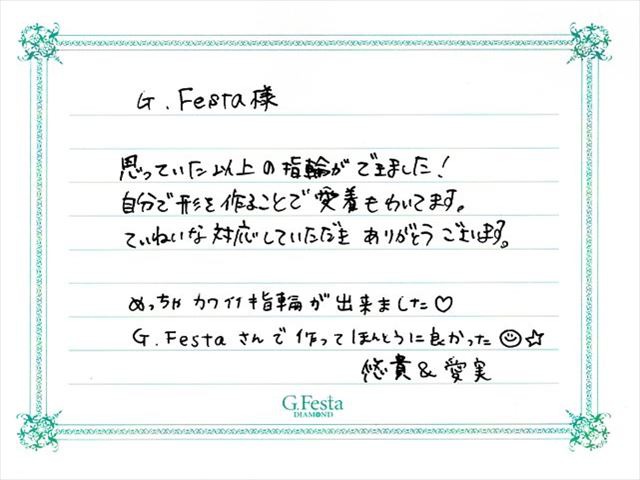 G.Festa様
思っていた以上の指輪ができました!
自分で形を作ることで愛着もわいてます。
ていねいな対応していただき ありがとうございます。
めっちゃ カワイイ指輪が出来ました♡
G.Festaさんで作ってほんとうに良かった☺☆
悠貴&愛実
G.Festa
DIAMOND